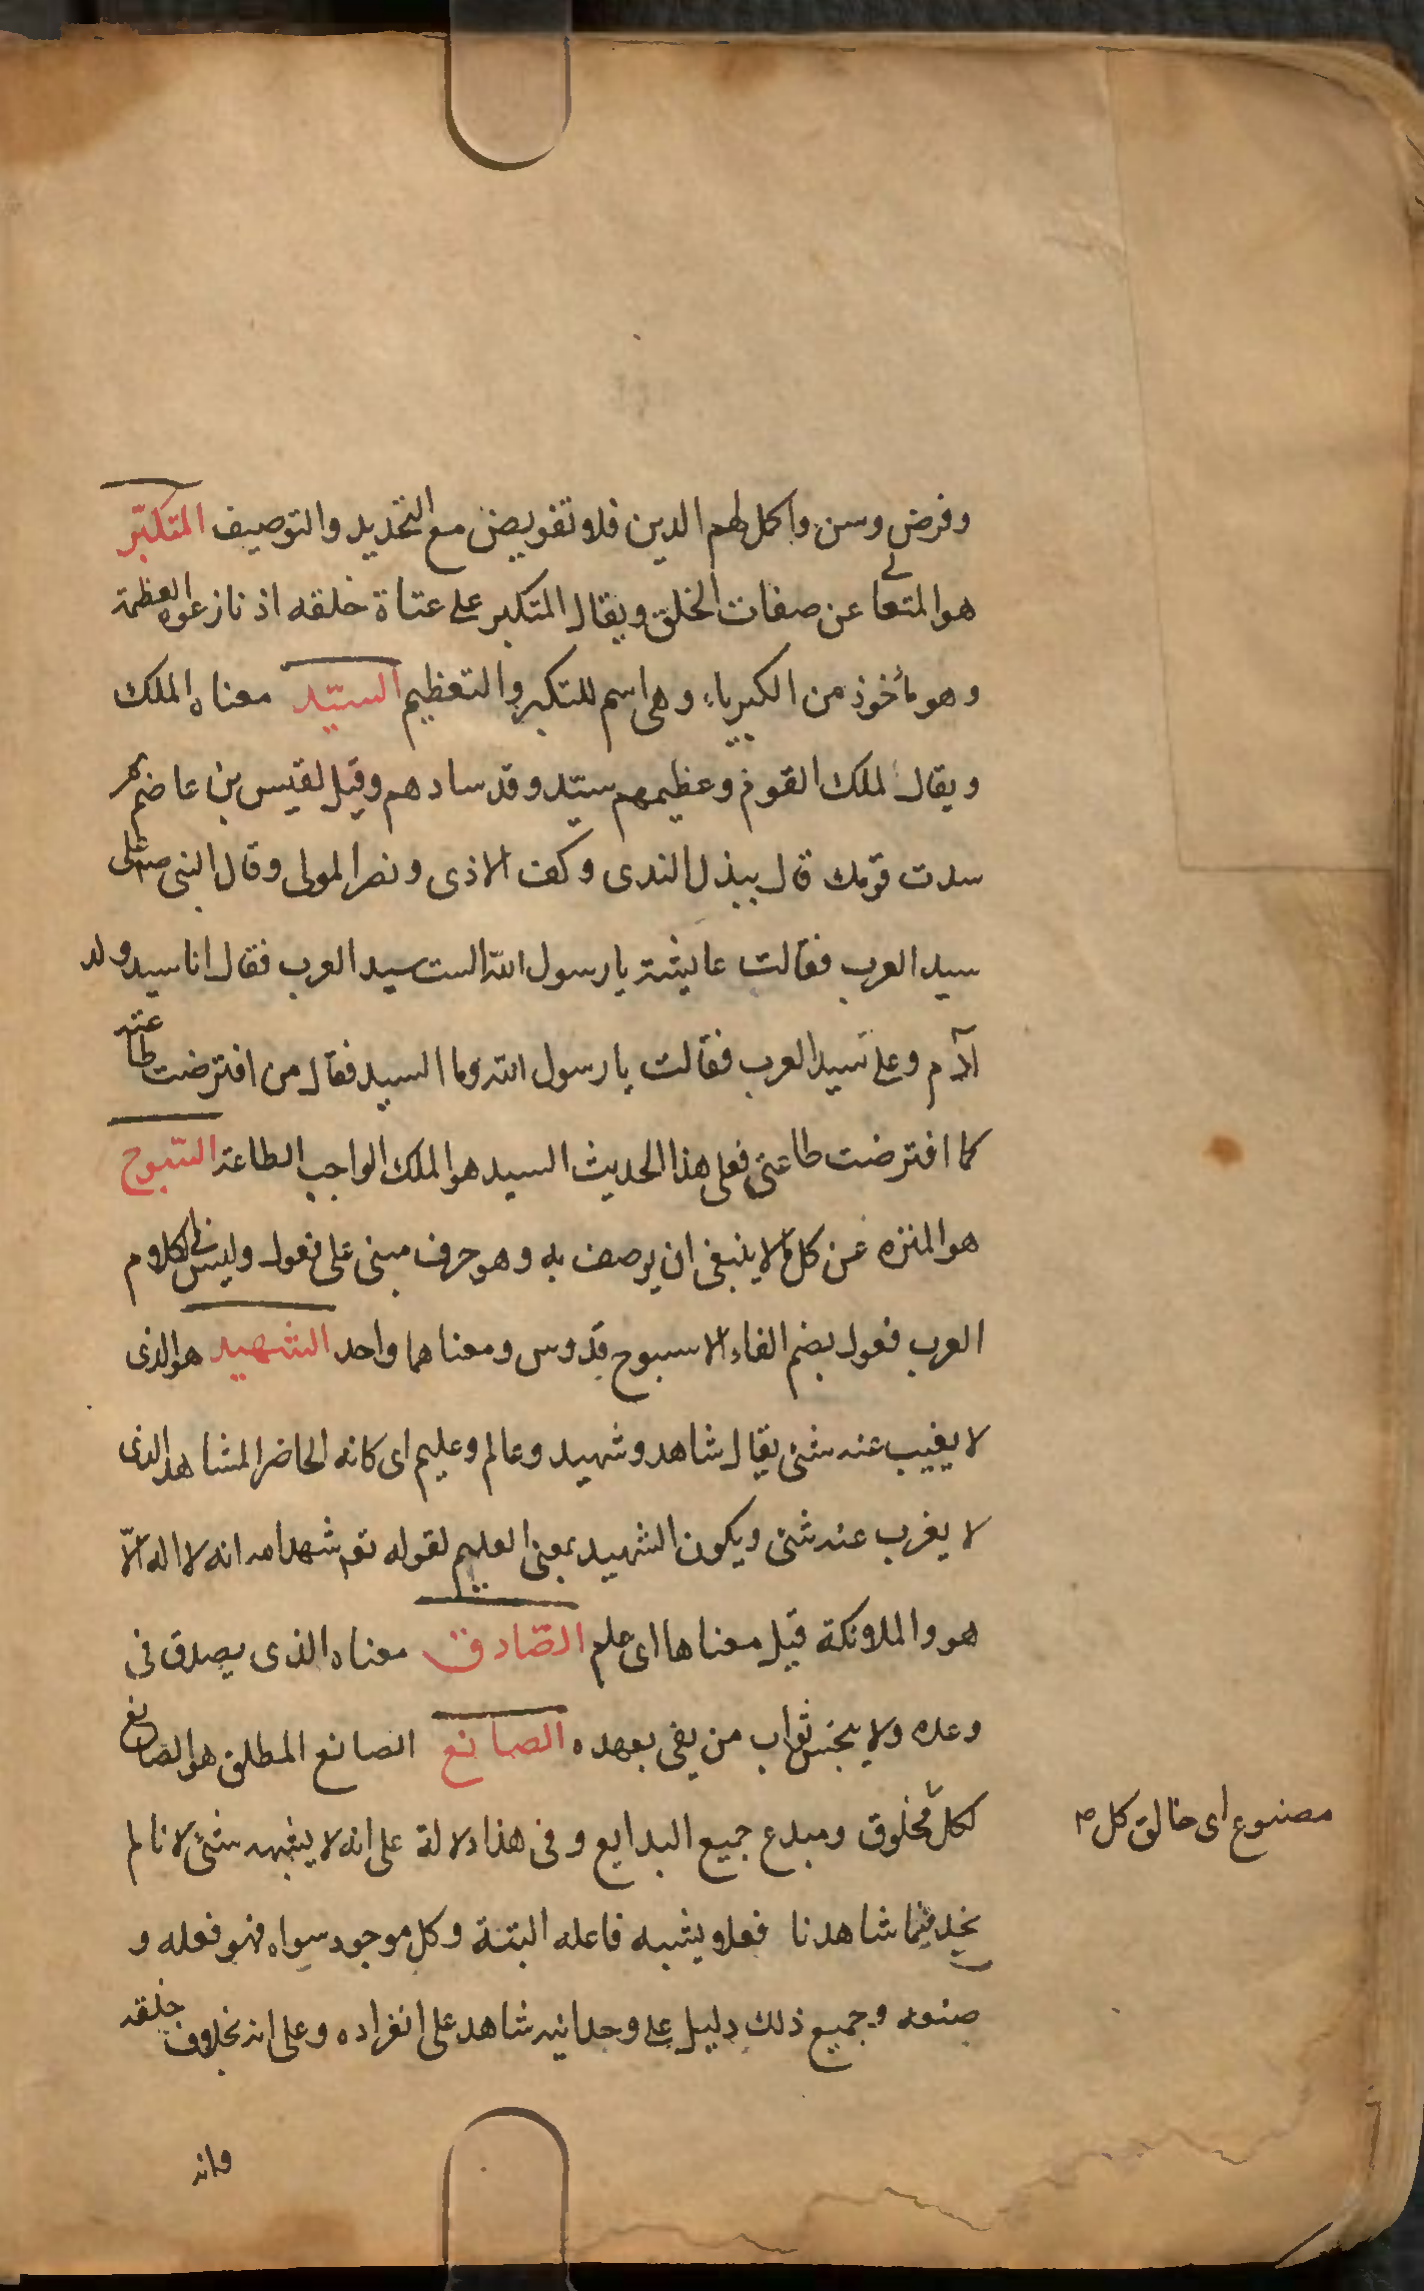 وفرض وسن واكمل لهم الدين فلا تفويض مع التحديد والتوصيف المتكبّر
هو المتعالى عن صفات الخلق ويقال المتكبر على عتاة خلقه اذ نازعوه العظمة
وهو مأخوذ من الكبرياء وهى اسم للتكبر والتعظيم السيّد معناه الملك
ويقال لملك القوم وعظيمهم سيّد وقد سادهم وقيل لقيس بن عاصم بم
سدت قومك قال ببذل الندى وكف الاذى ونصر المولى وقال النبى ص على
سيد العرب فقالت عايشة يا رسول الله الست سيد العرب فقال انا سيد ولد
آدم وعلى سيد العرب فقالت يا رسول الله وما السيد فقال من افترضت طاعته
كما افترضت طاعتى فعلى هذا الحديث السيد هو الملك الواجب الطاعة السّبوح
هو المنزه عن كل ما لا ينبغى ان يوصف به وهو حرف مبنى على فعول وليس فى كلام
العرب فعول بضم الفاء الا سبوح قدوس ومعناهما واحد الشهيد هو الذى
لا يغيب عنه شئ يقال شاهد وشهيد وعالم وعليم اى كانه الحاضر المشاهد الذى
لا يعزب عنه شئ ويكون الشهيد بمعنى العليم لقوله تعم شهد الله انه لا اله الّا
هو والملائكة قيل معناها اى علم الصّادق معناه الذى يصدق فى
وعده ولا يبخس ثواب من يفى بعهده الصانع الصانع المطلق هو الصانع
لكل مخلوق ومبدع جميع البدايع وفى هذا دلالة على انه لا يشبهه شئ لانا لم
مصنوع اى خالق كل م
نجد فيما شاهدنا فعلا يشبه فاعله البتة وكل موجود سواه فهو فعله و
صنعه وجميع ذلك دليل على وحدانيته شاهد على انفراده وعلى انه بخلاف خلقه
وانه